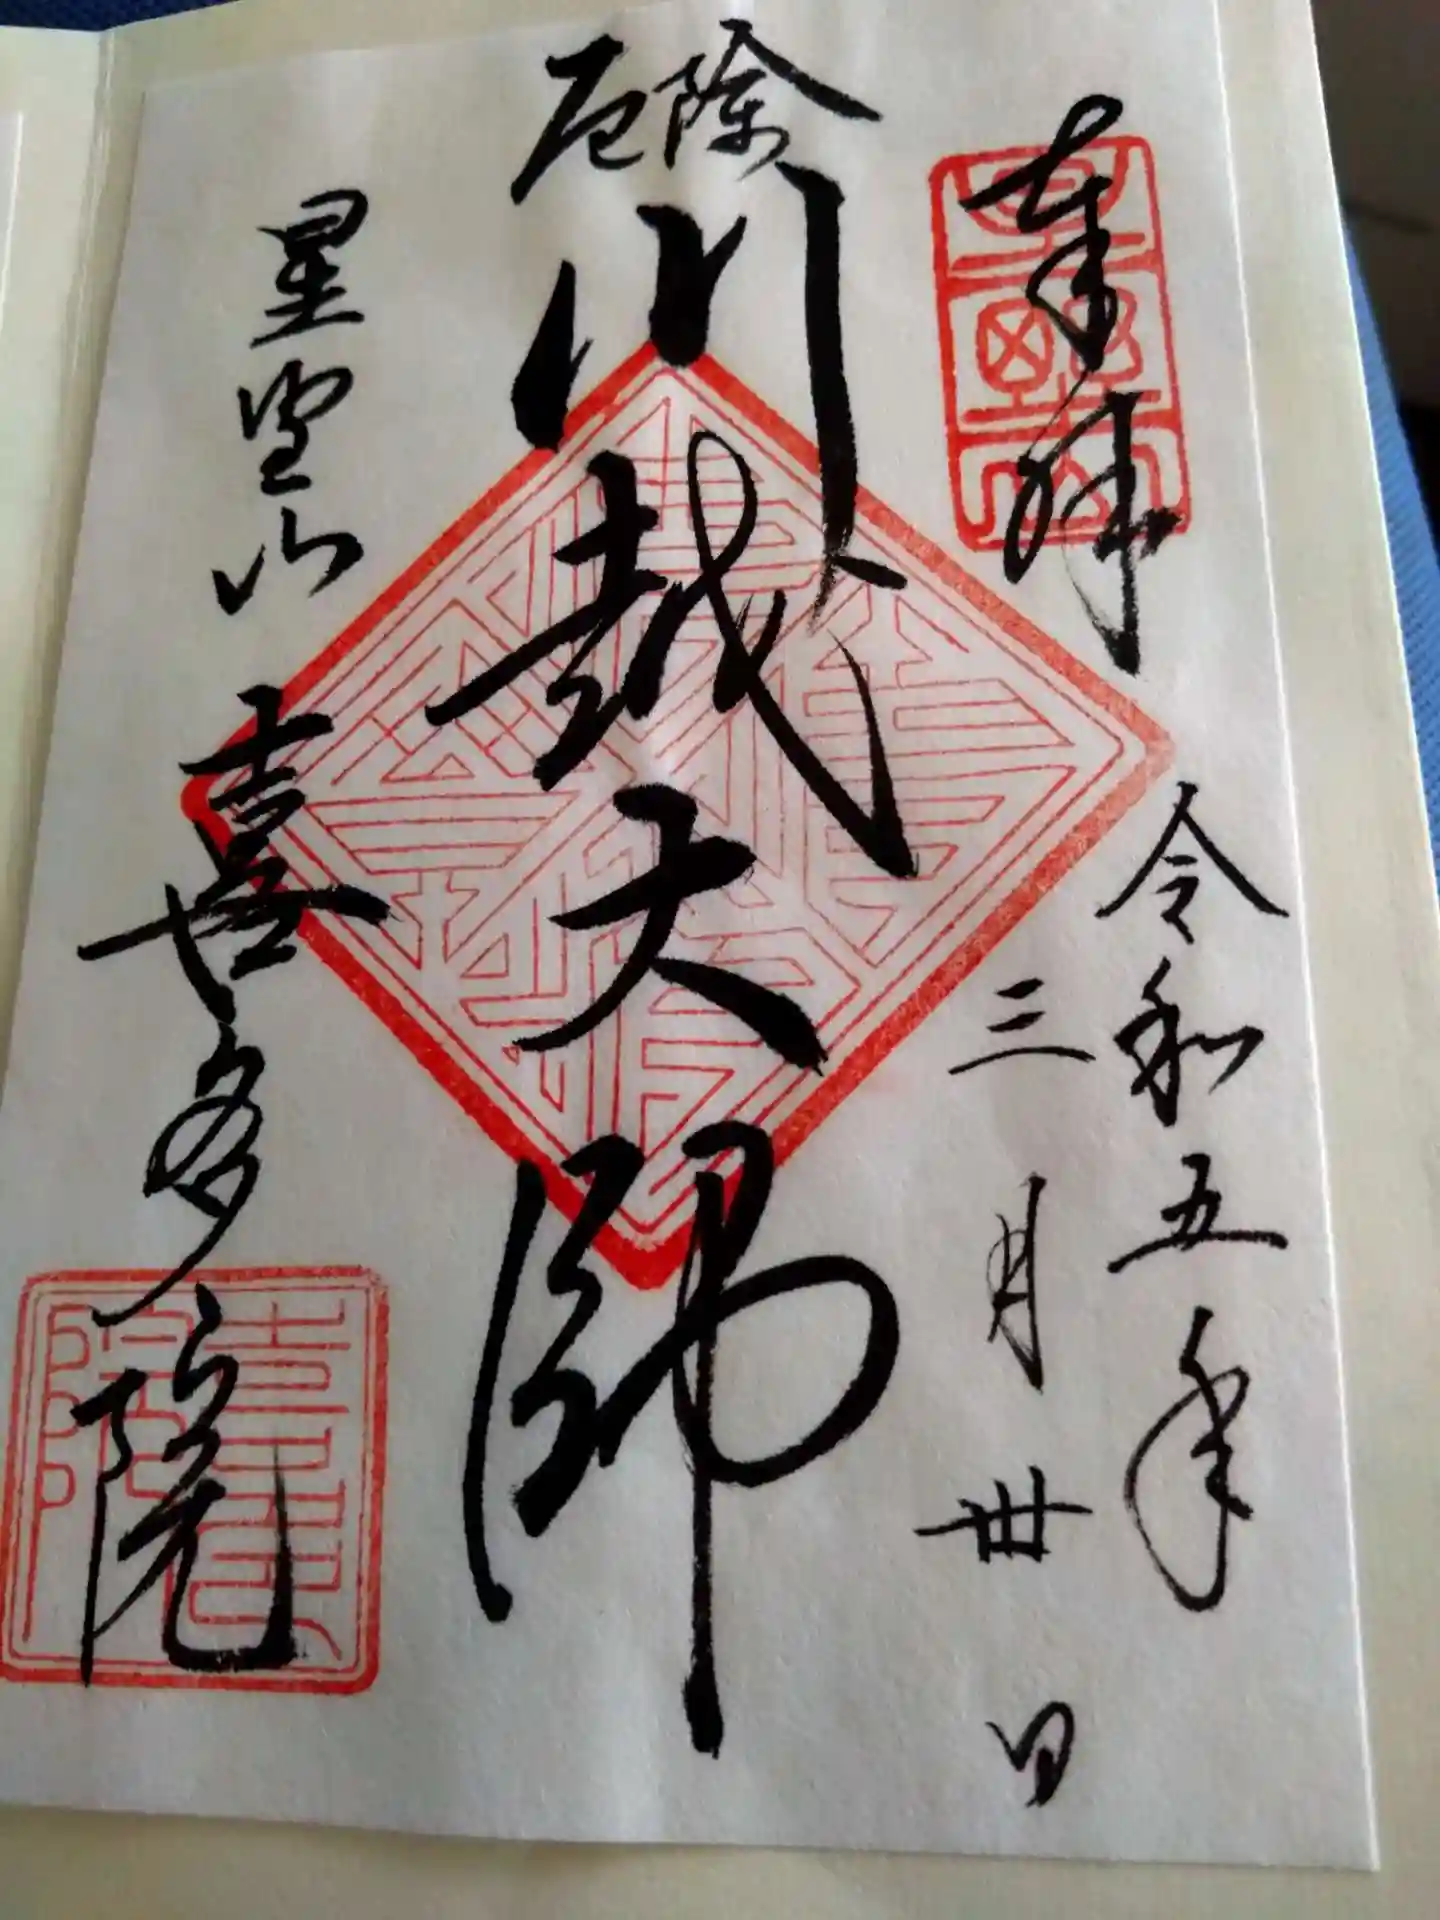 奉拝
令和五年
三月卅日
厄除
川越大師
星野山
喜多院
喜多院